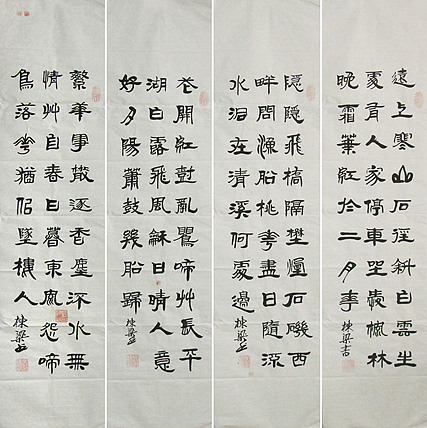 遠上寒山石徑斜白雲生
處有人家停車坐愛楓林
晚霜葉紅於二月
棟梁書
隱隱飛橋隔壄煙石磯西
畔問漁船桃花盡日隨流
水洞在清溪何處邊
棟梁
花開紅樹亂鶯啼艸長平
湖白鷺飛風龢日晴人意
好夕陽簫鼓幾船歸
棟梁
繁華事散逐香塵流水無
情艸自春日暮東風怨啼
鳥落花猶佀墜樓人
棟梁